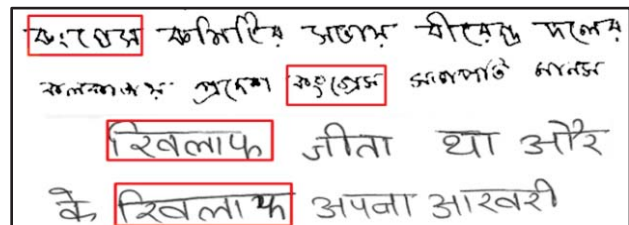 কংগ্রেস কমিটির সভায় বীরেন্দ্র দলের
কলকাতায় প্রদেশ কংগ্রেস সভাপতি মানস
खिलाफ जीता था और
के खिलाफ अपना आखरी